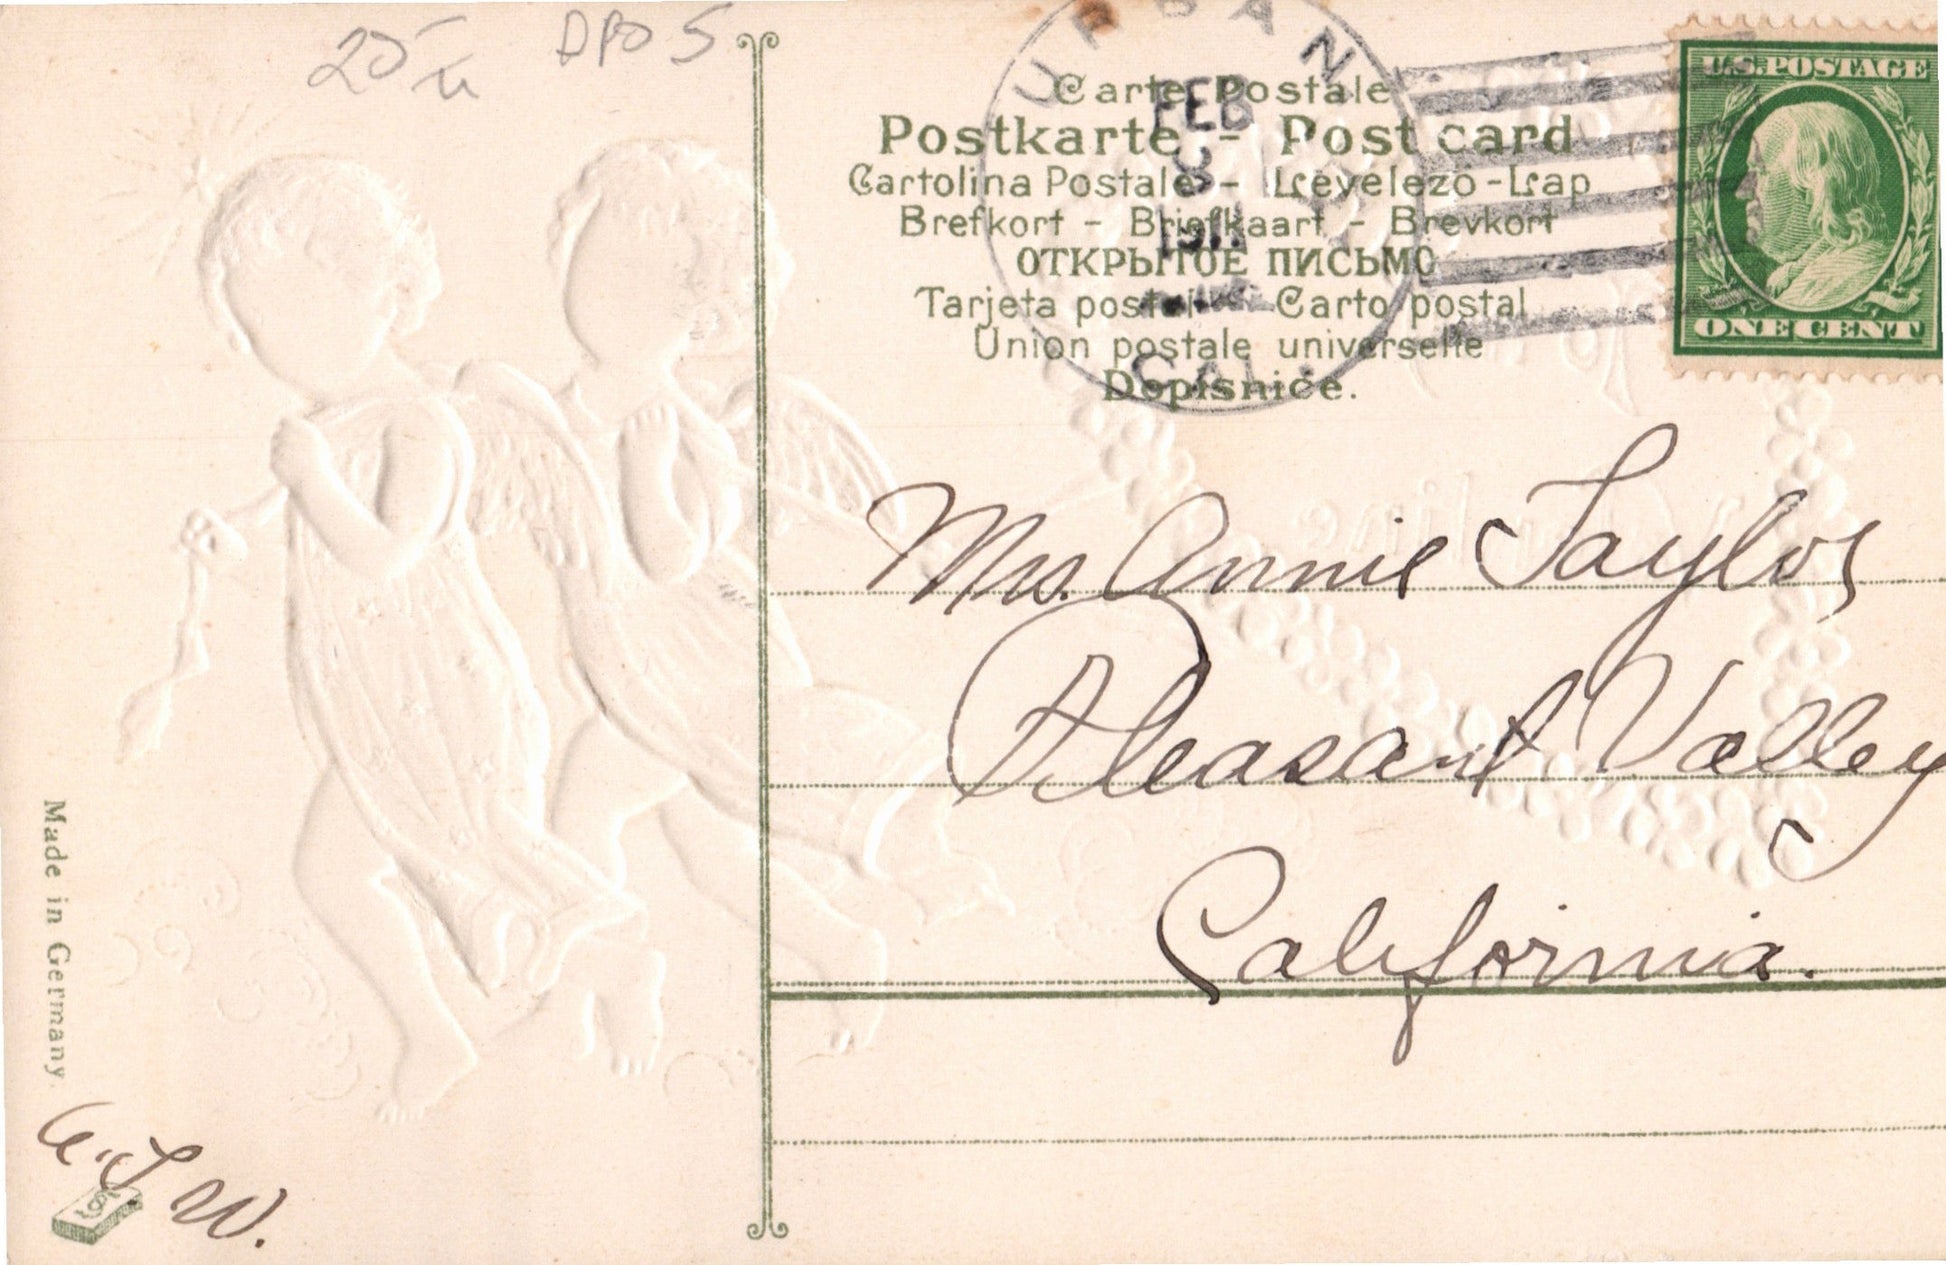 DPO 5
URBAN
FEB
8
1911
CAL.
U.S. POSTAGE
ONE CENT
Carte Postale
Postkarte - Post card
Cartolina Postale - Levelezö-Lap
Brefkort - Briefkaart - Brevkort
ОТКРЫТОЕ ПИСЬМО
Tarjeta postal - Carto postal
Union postale universelle
Dopisnice.
Mrs. Annie Taylor
Pleasant Valley
California.
Made in Germany